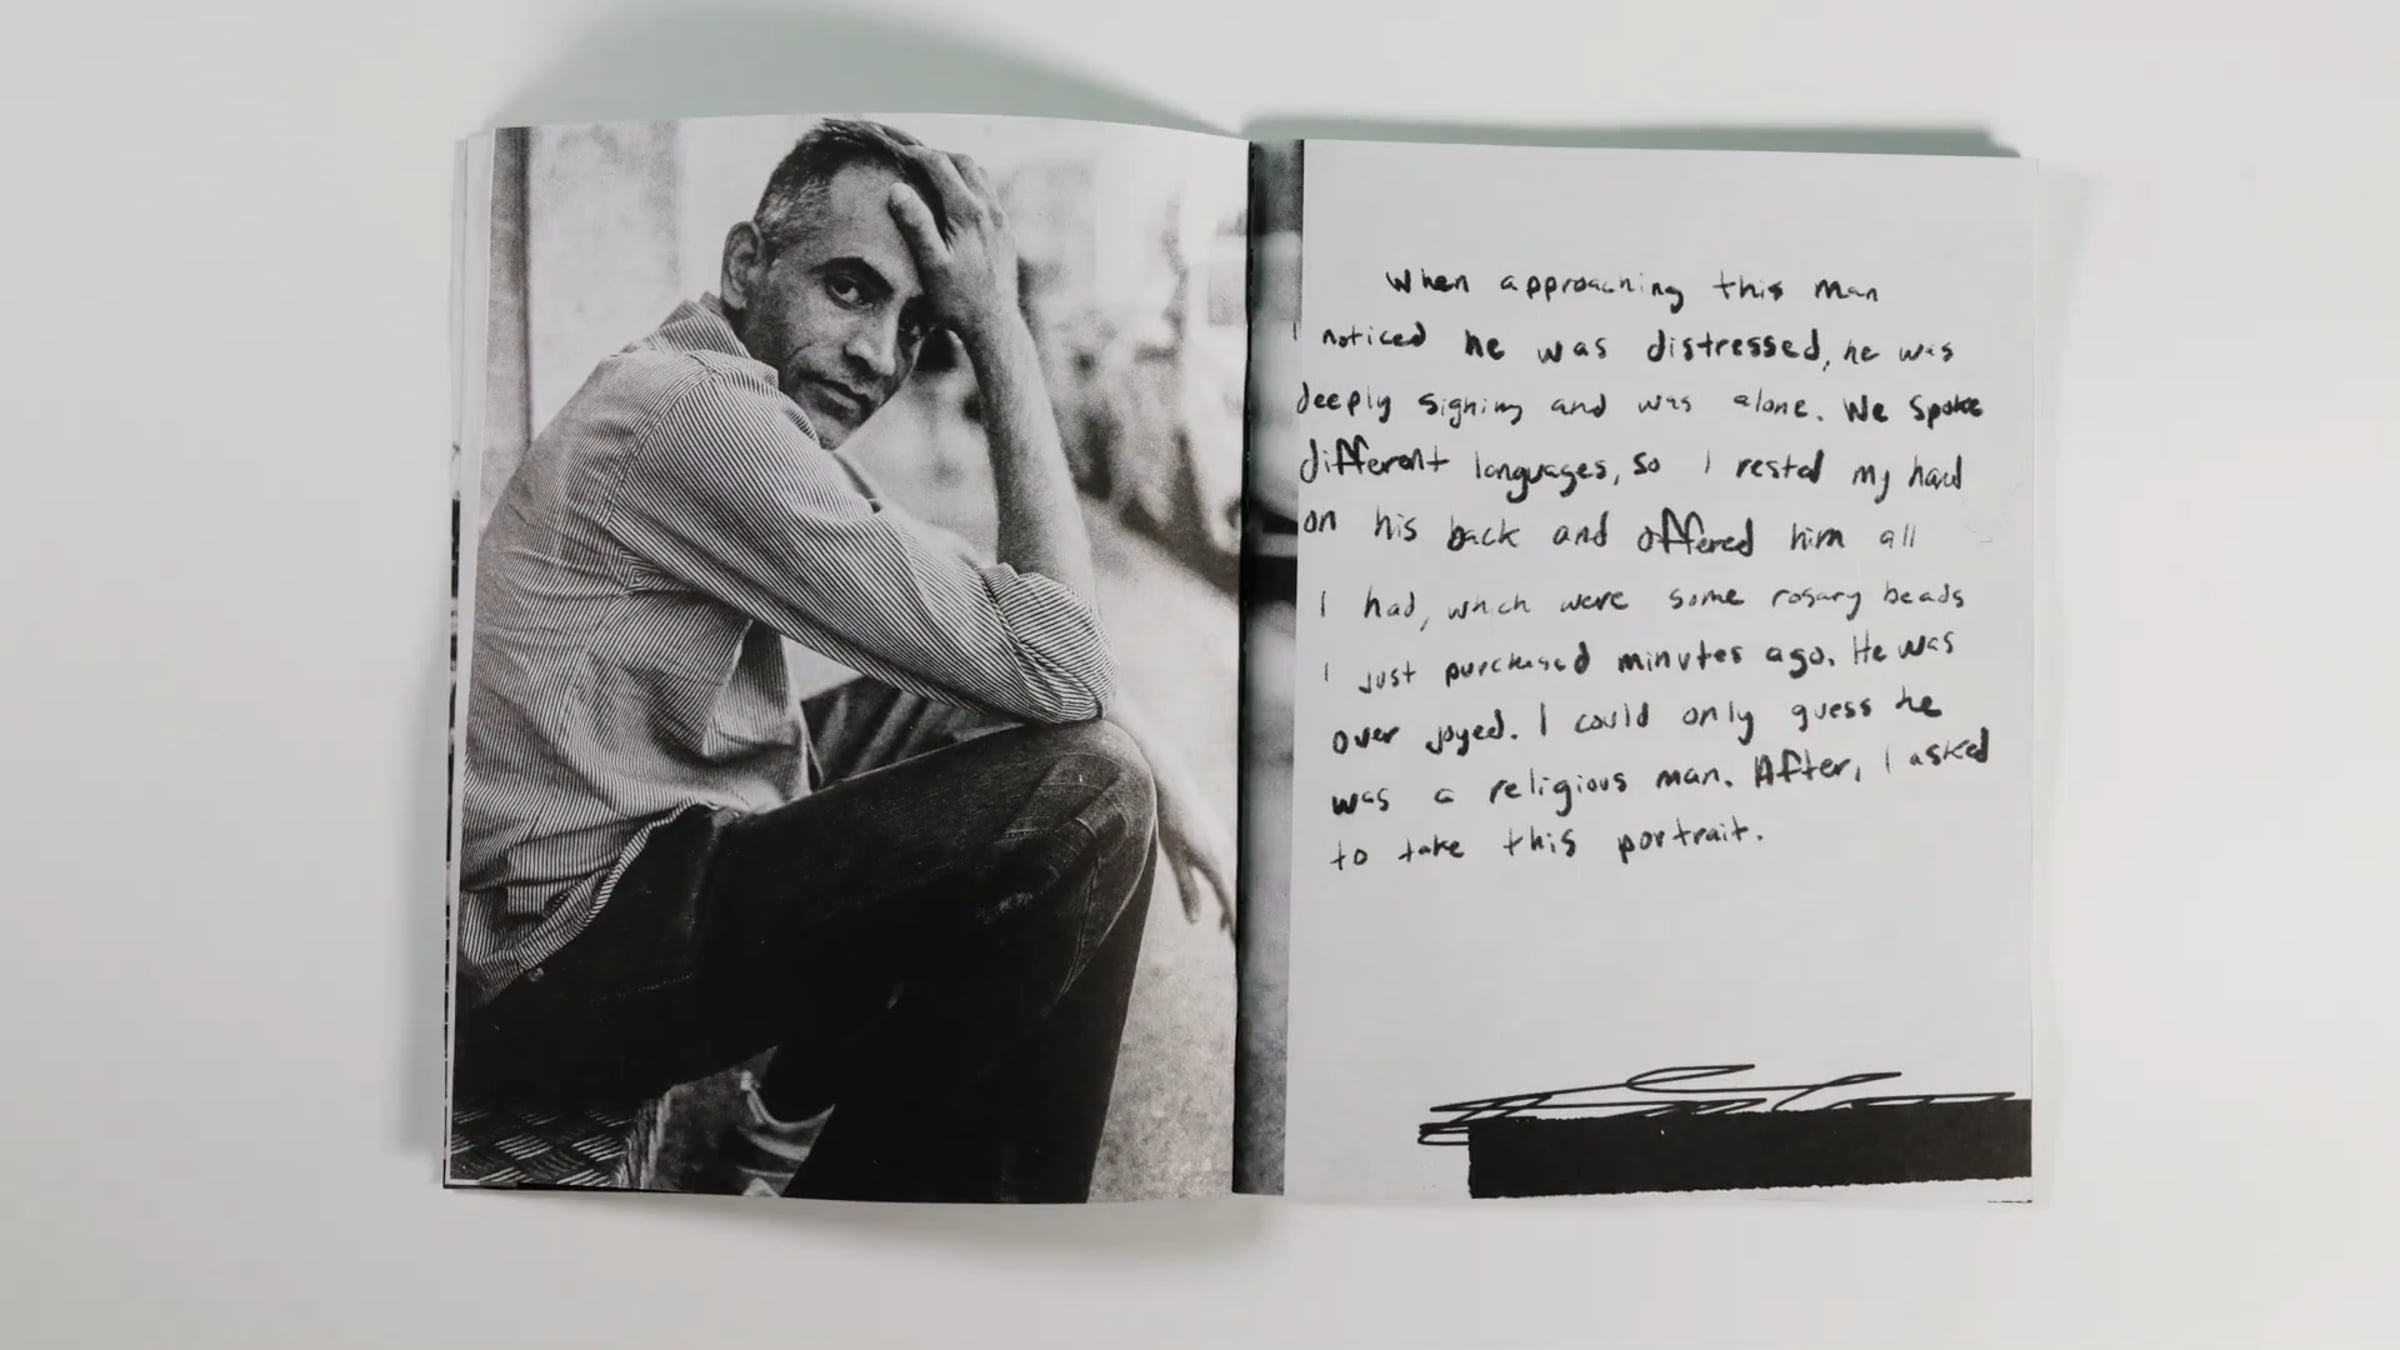 When approaching this man
I noticed he was distressed, he was
deeply signing and was alone. We spoke
different languages, so I rested my hand
on his back and offered him all
I had, which were some rosary beads
I just purchased minutes ago. He was
over joyed. I could only guess he
was a religious man. After, I asked
to take this portrait.